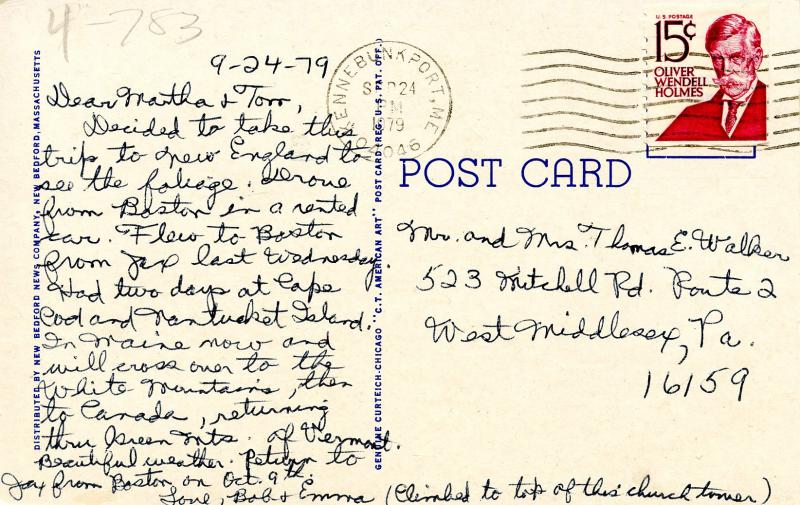 4-783
9-24-79
Dear Martha & Tom,
Decided to take this
trip to New England to
see the foliage. Drove
from Boston in a rented
car. Flew to Boston
from Jax last Wednesday.
Had two days at Cape
Cod and Nantucket Island.
In Maine now and
will cross over to the
White Mountains, then
to Canada, returning
thru Green Mts. of Vermont.
Beautiful weather. Return to
Jax from Boston on Oct. 9th.
Love, Bob & Emma (Climbed to top of this church tower)
DISTRIBUTED BY NEW BEDFORD NEWS COMPANY, NEW BEDFORD, MASSACHUSETTS
GENUINE CURTEICH-CHICAGO "C.T. AMERICAN ART" POST CARD (REG. U.S. PAT. OFF.)
KENNEBUNKPORT, ME
SEP 24
PM
1979
04046
U.S. POSTAGE
15¢
OLIVER
WENDELL
HOLMES
POST CARD
Mr. and Mrs. Thomas E. Walker
523 Mitchell Rd. Route 2
West Middlesex, Pa.
16159